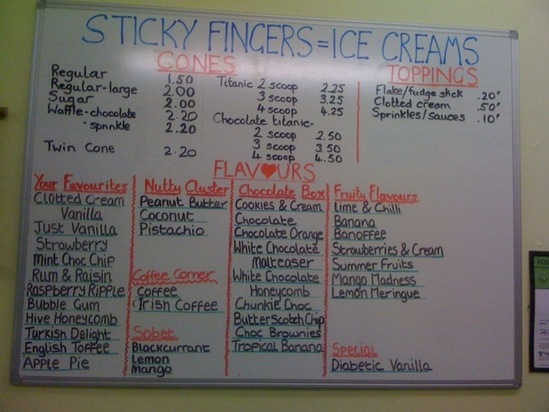 STICKY FINGERS = ICE CREAMS
CONES
Regular 1.50
Regular-large 2.00
Sugar 2.00
Waffle-chocolate 2.20
-sprinkle 2.20
Twin Cone 2.20
Titanic 2 scoop 2.25
3 scoop 3.25
4 scoop 4.25
Chocolate titanic-
2 scoop 2.50
3 scoop 3.50
4 scoop 4.50
TOPPINGS
Flake/fudge stick .20p
Clotted cream .50p
Sprinkles/sauces .10p
FLAVOURS
Your Favourites
Clotted Cream
Vanilla
Just Vanilla
Strawberry
Mint Choc Chip
Rum & Raisin
Raspberry Ripple
Bubble Gum
Hive Honeycomb
Turkish Delight
English Toffee
Apple Pie
Nutty Cluster
Peanut Butter
Coconut
Pistachio
Coffee Corner
Coffee
Irish Coffee
Sobet
Blackcurrant
Lemon
Mango
Chocolate Box
Cookies & Cream
Chocolate
Chocolate Orange
White Chocolate
Malteaser
White Chocolate
Honeycomb
Chunkie Choc
Butterscotch Chip
Choc Brownies
Tropical Banana
Fruity Flavours
Lime & Chilli
Banana
Banoffee
Strawberries & Cream
Summer Fruits
Mango Madness
Lemon Meringue
Special
Diabetic Vanilla